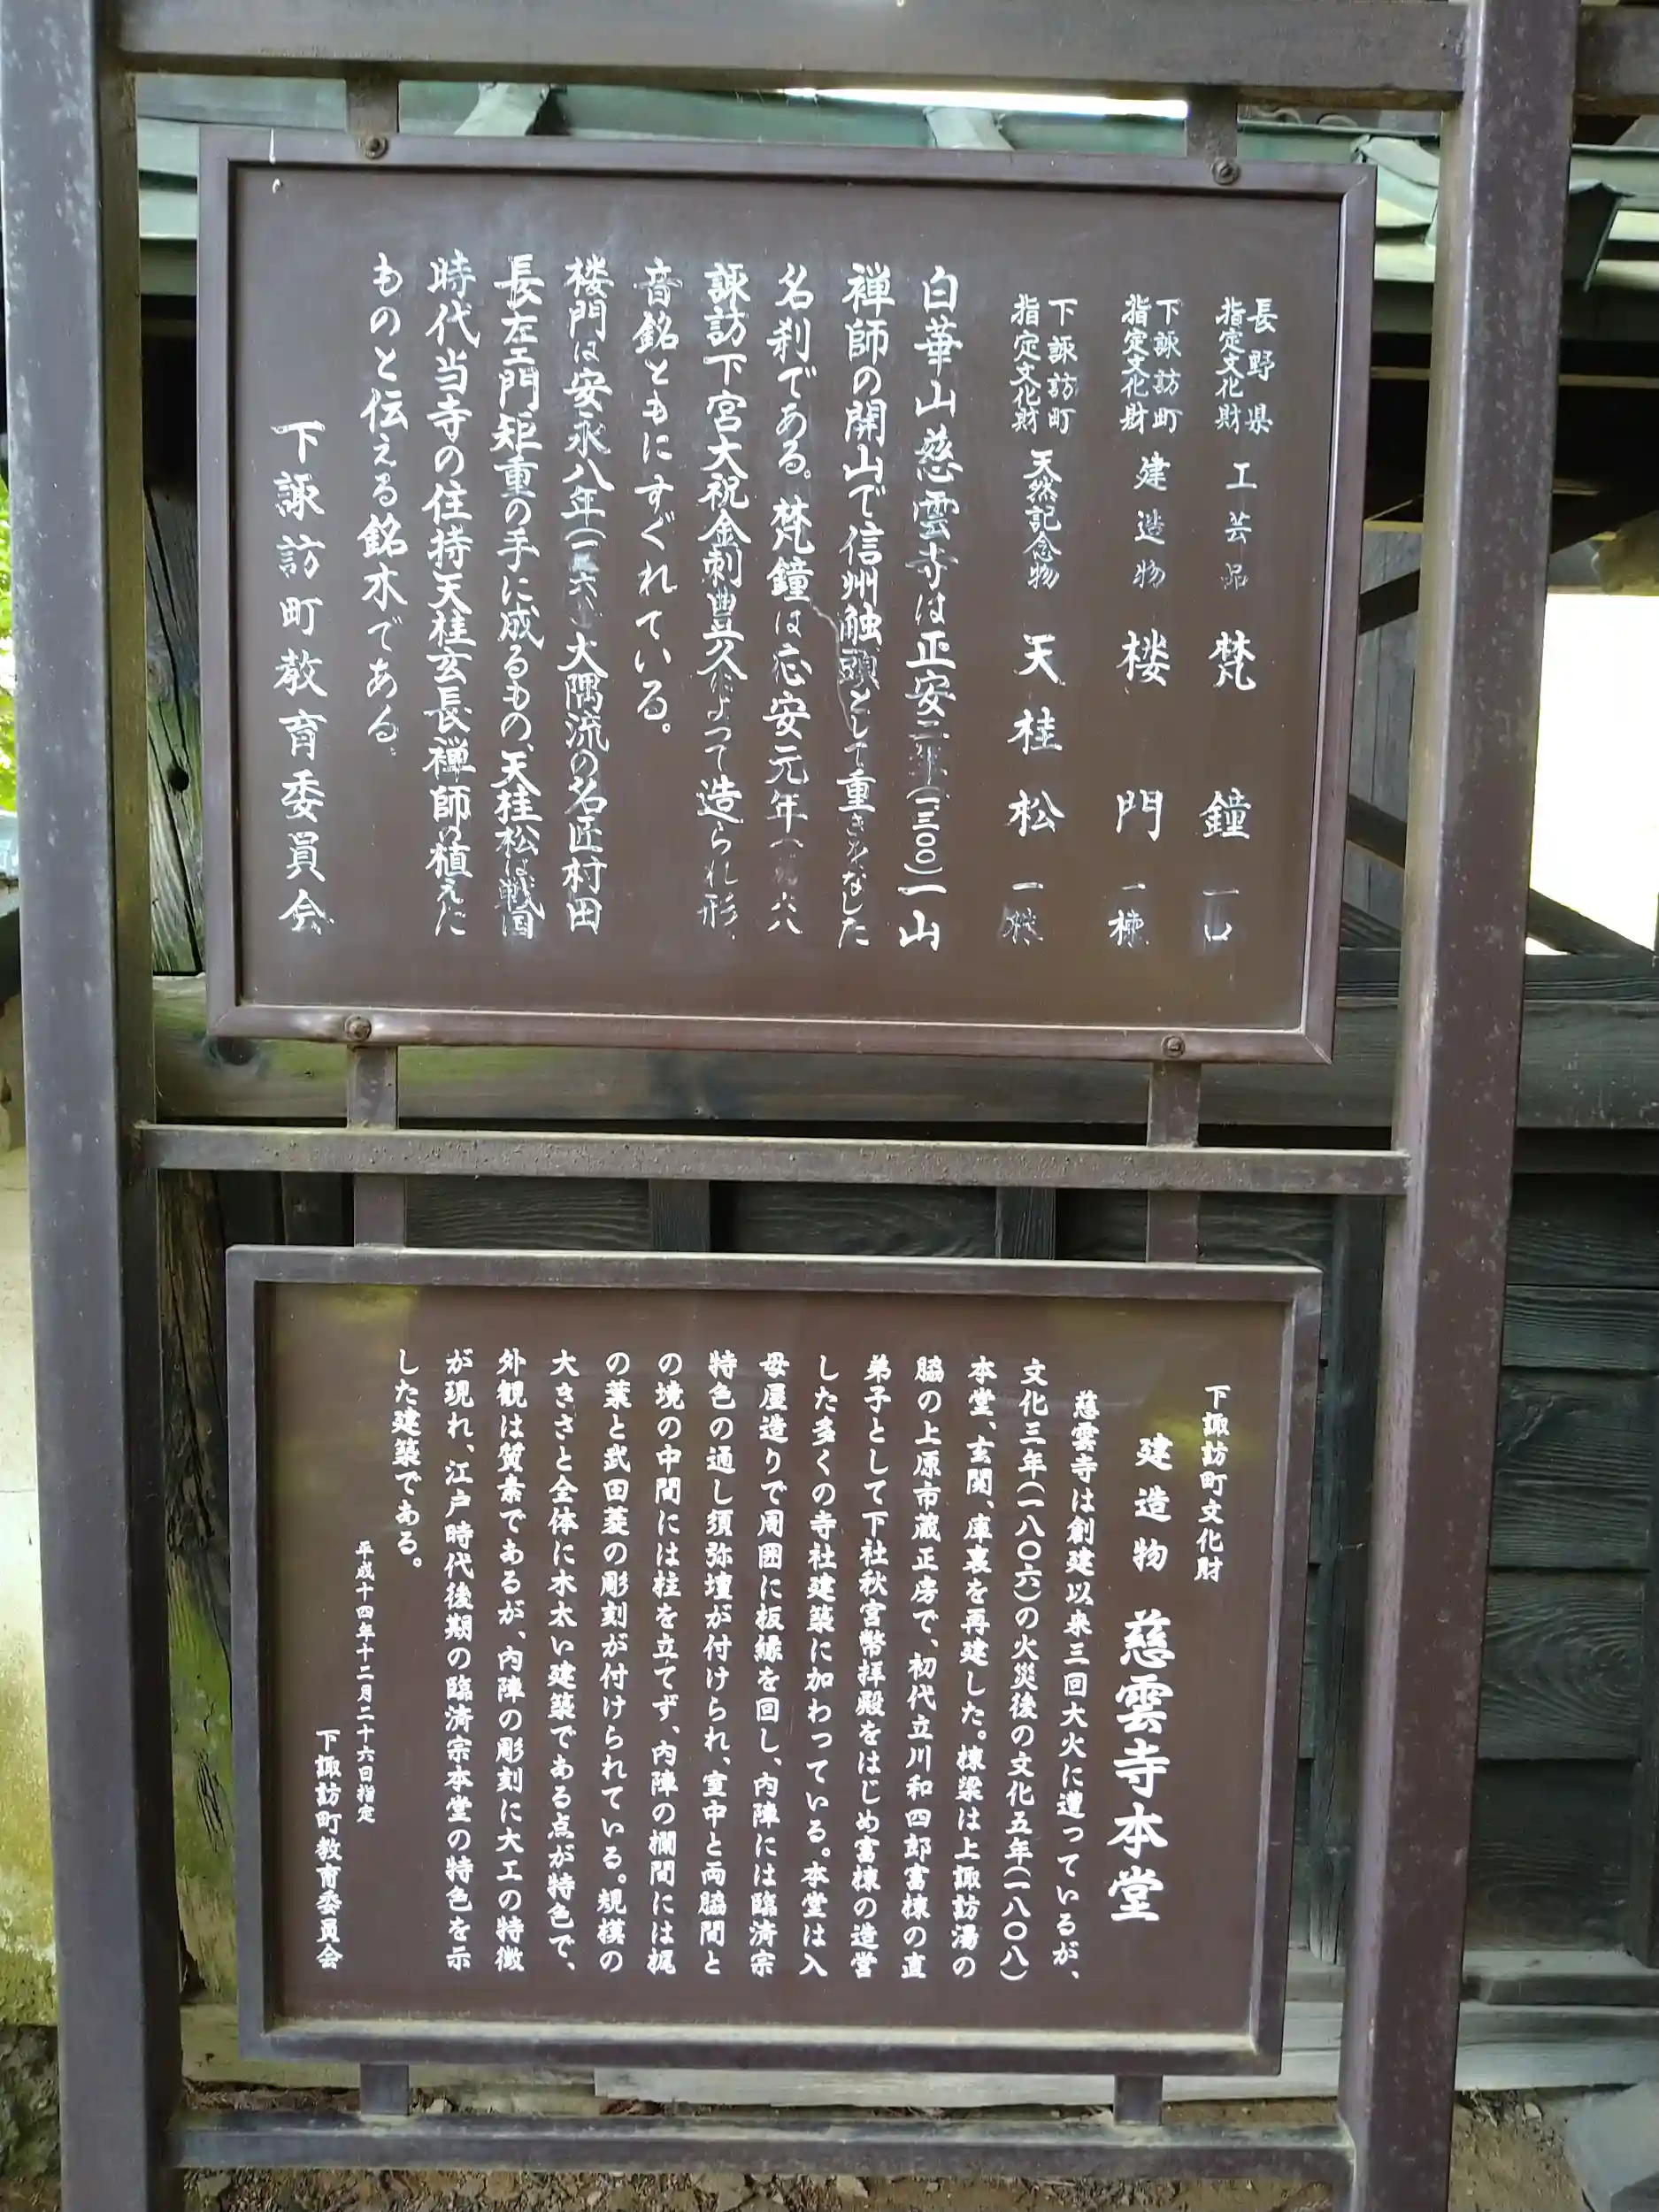 長野県
指定文化財 工芸品 梵鐘 一口
下諏訪町
指定文化財 建造物 楼門 一棟
下諏訪町
指定文化財 天然記念物 天桂松 一株
白華山慈雲寺は正安二年(一三〇〇)一山
禅師の開山で信州触頭として重きをなした
名刹である。梵鐘は応安元年(一三六八
諏訪下宮大祝金刺豊久によって造られ形、
音銘ともにすぐれている。
楼門は安永八年(一 大隅流の名匠村田
長左エ門矩重の手に成るもの、天桂松は戦国
時代当寺の住持天桂玄長禅師の植えた
ものと伝える銘木である。
下諏訪町教育委員会
下諏訪町文化財
建造物 慈雲寺本堂
慈雲寺は創建以来三回大火に遭っているが、
文化三年(一八〇六)の火災後の文化五年(一八〇八)
本堂、玄関、庫裏を再建した。棟梁は上諏訪湯の
脇の上原市蔵正房で、初代立川和四郎富棟の直
弟子として下社秋宮幣拝殿をはじめ富棟の造営
した多くの寺社建築に加わっている。本堂は入
母屋造りで周囲に板縁を回し、内陣には臨済宗
特色の通し須弥壇が付けられ、室中と両脇間と
の境の中間には柱を立てず、内陣の欄間には梶
の葉と武田菱の彫刻が付けられている。規模の
大きさと全体に木太い建築である点が特色で、
外観は質素であるが、内陣の彫刻に大工の特徴
が現れ、江戸時代後期の臨済宗本堂の特色を示
した建築である。
平成十四年十二月二十六日指定
下諏訪町教育委員会